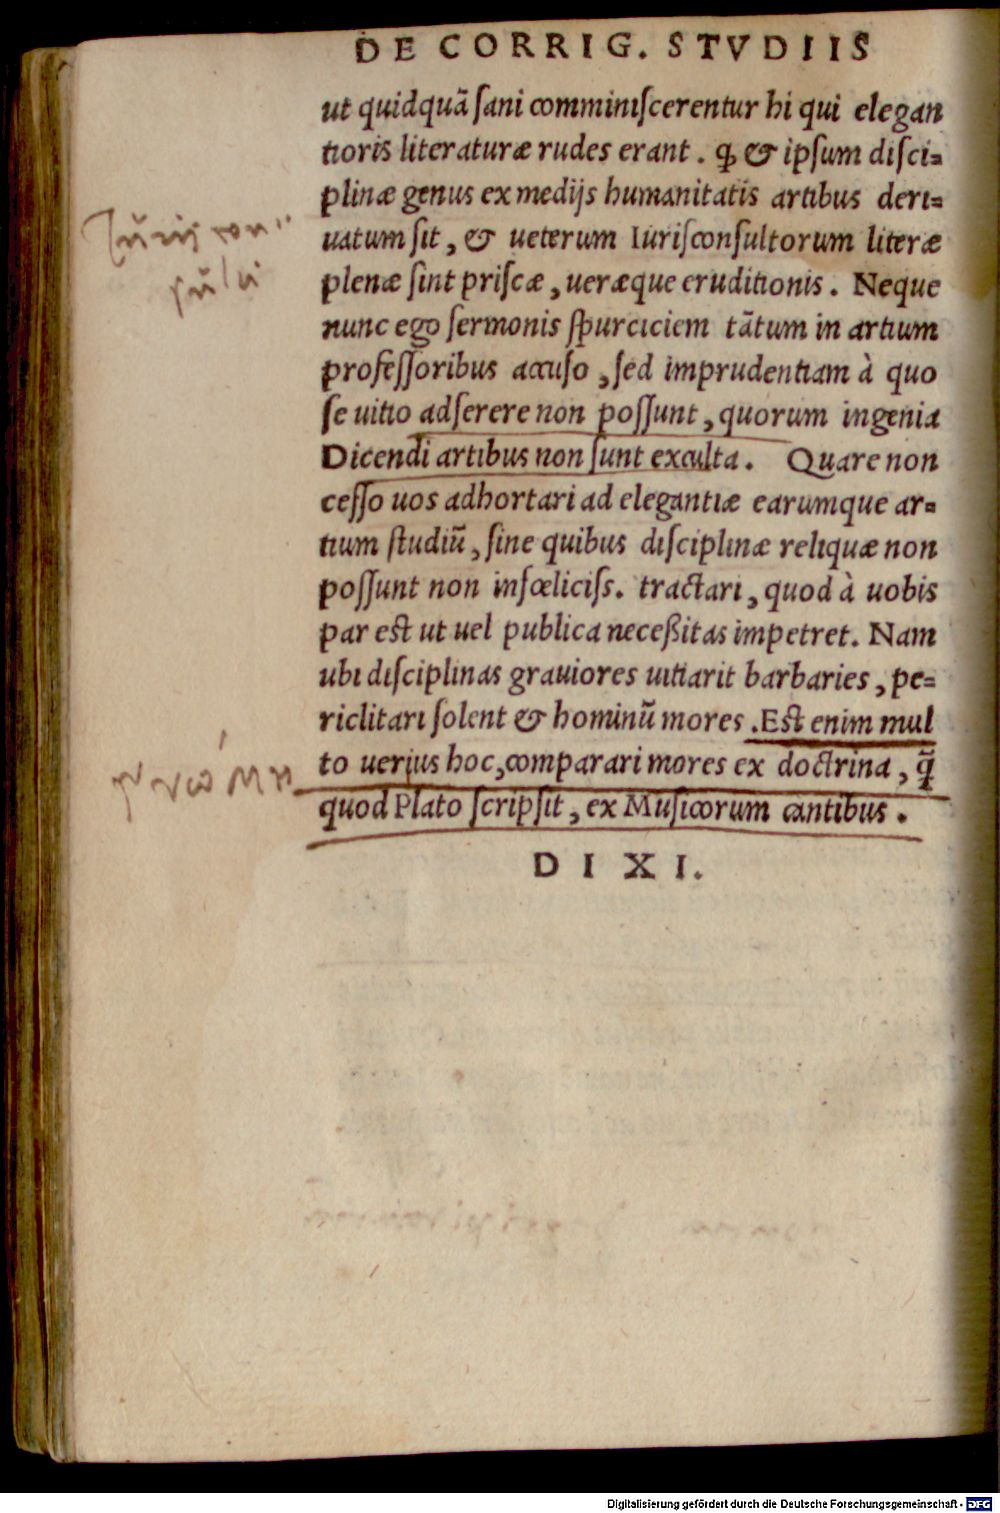 DE CORRIG. STVDIIS
ut quidquã ſani comminiſcerentur hi qui elegan
tioris literaturæ rudes erant. ꝙ & ipſum diſci=
plinæ genus ex medijs humanitatis artibus deri=
uatum ſit, & ueterum Iuriſconſultorum literæ
plenæ ſint priſcæ, ueræque eruditionis. Neque
nunc ego ſermonis ſpurciciem tãtum in artium
profeſſoribus accuſo, ſed imprudentiam à quo
ſe uitio adſerere non poſſunt, quorum ingenia
Dicendi artibus non ſunt exculta. Quare non
ceſſo uos adhortari ad elegantiæ earumque ar=
tium ſtudiũ, ſine quibus diſciplinæ reliquæ non
poſſunt non infœliciſs. tractari, quod à uobis
par eſt ut uel publica neceßitas impetret. Nam
ubi diſciplinas grauiores uitiarit barbaries, pe=
riclitari ſolent & hominũ mores. Eſt enim mul
to uerius hoc, comparari mores ex doctrina, q̃
quod Plato ſcripſit, ex Muſicorum cantibus.
DIXI.
Iũris con"
sũlti
Digitalisierung gefördert durch die Deutsche Forschungsgemeinschaft - DFG